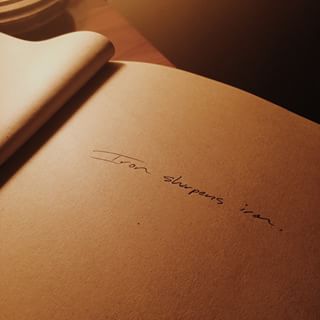 Iron sharpens iron.